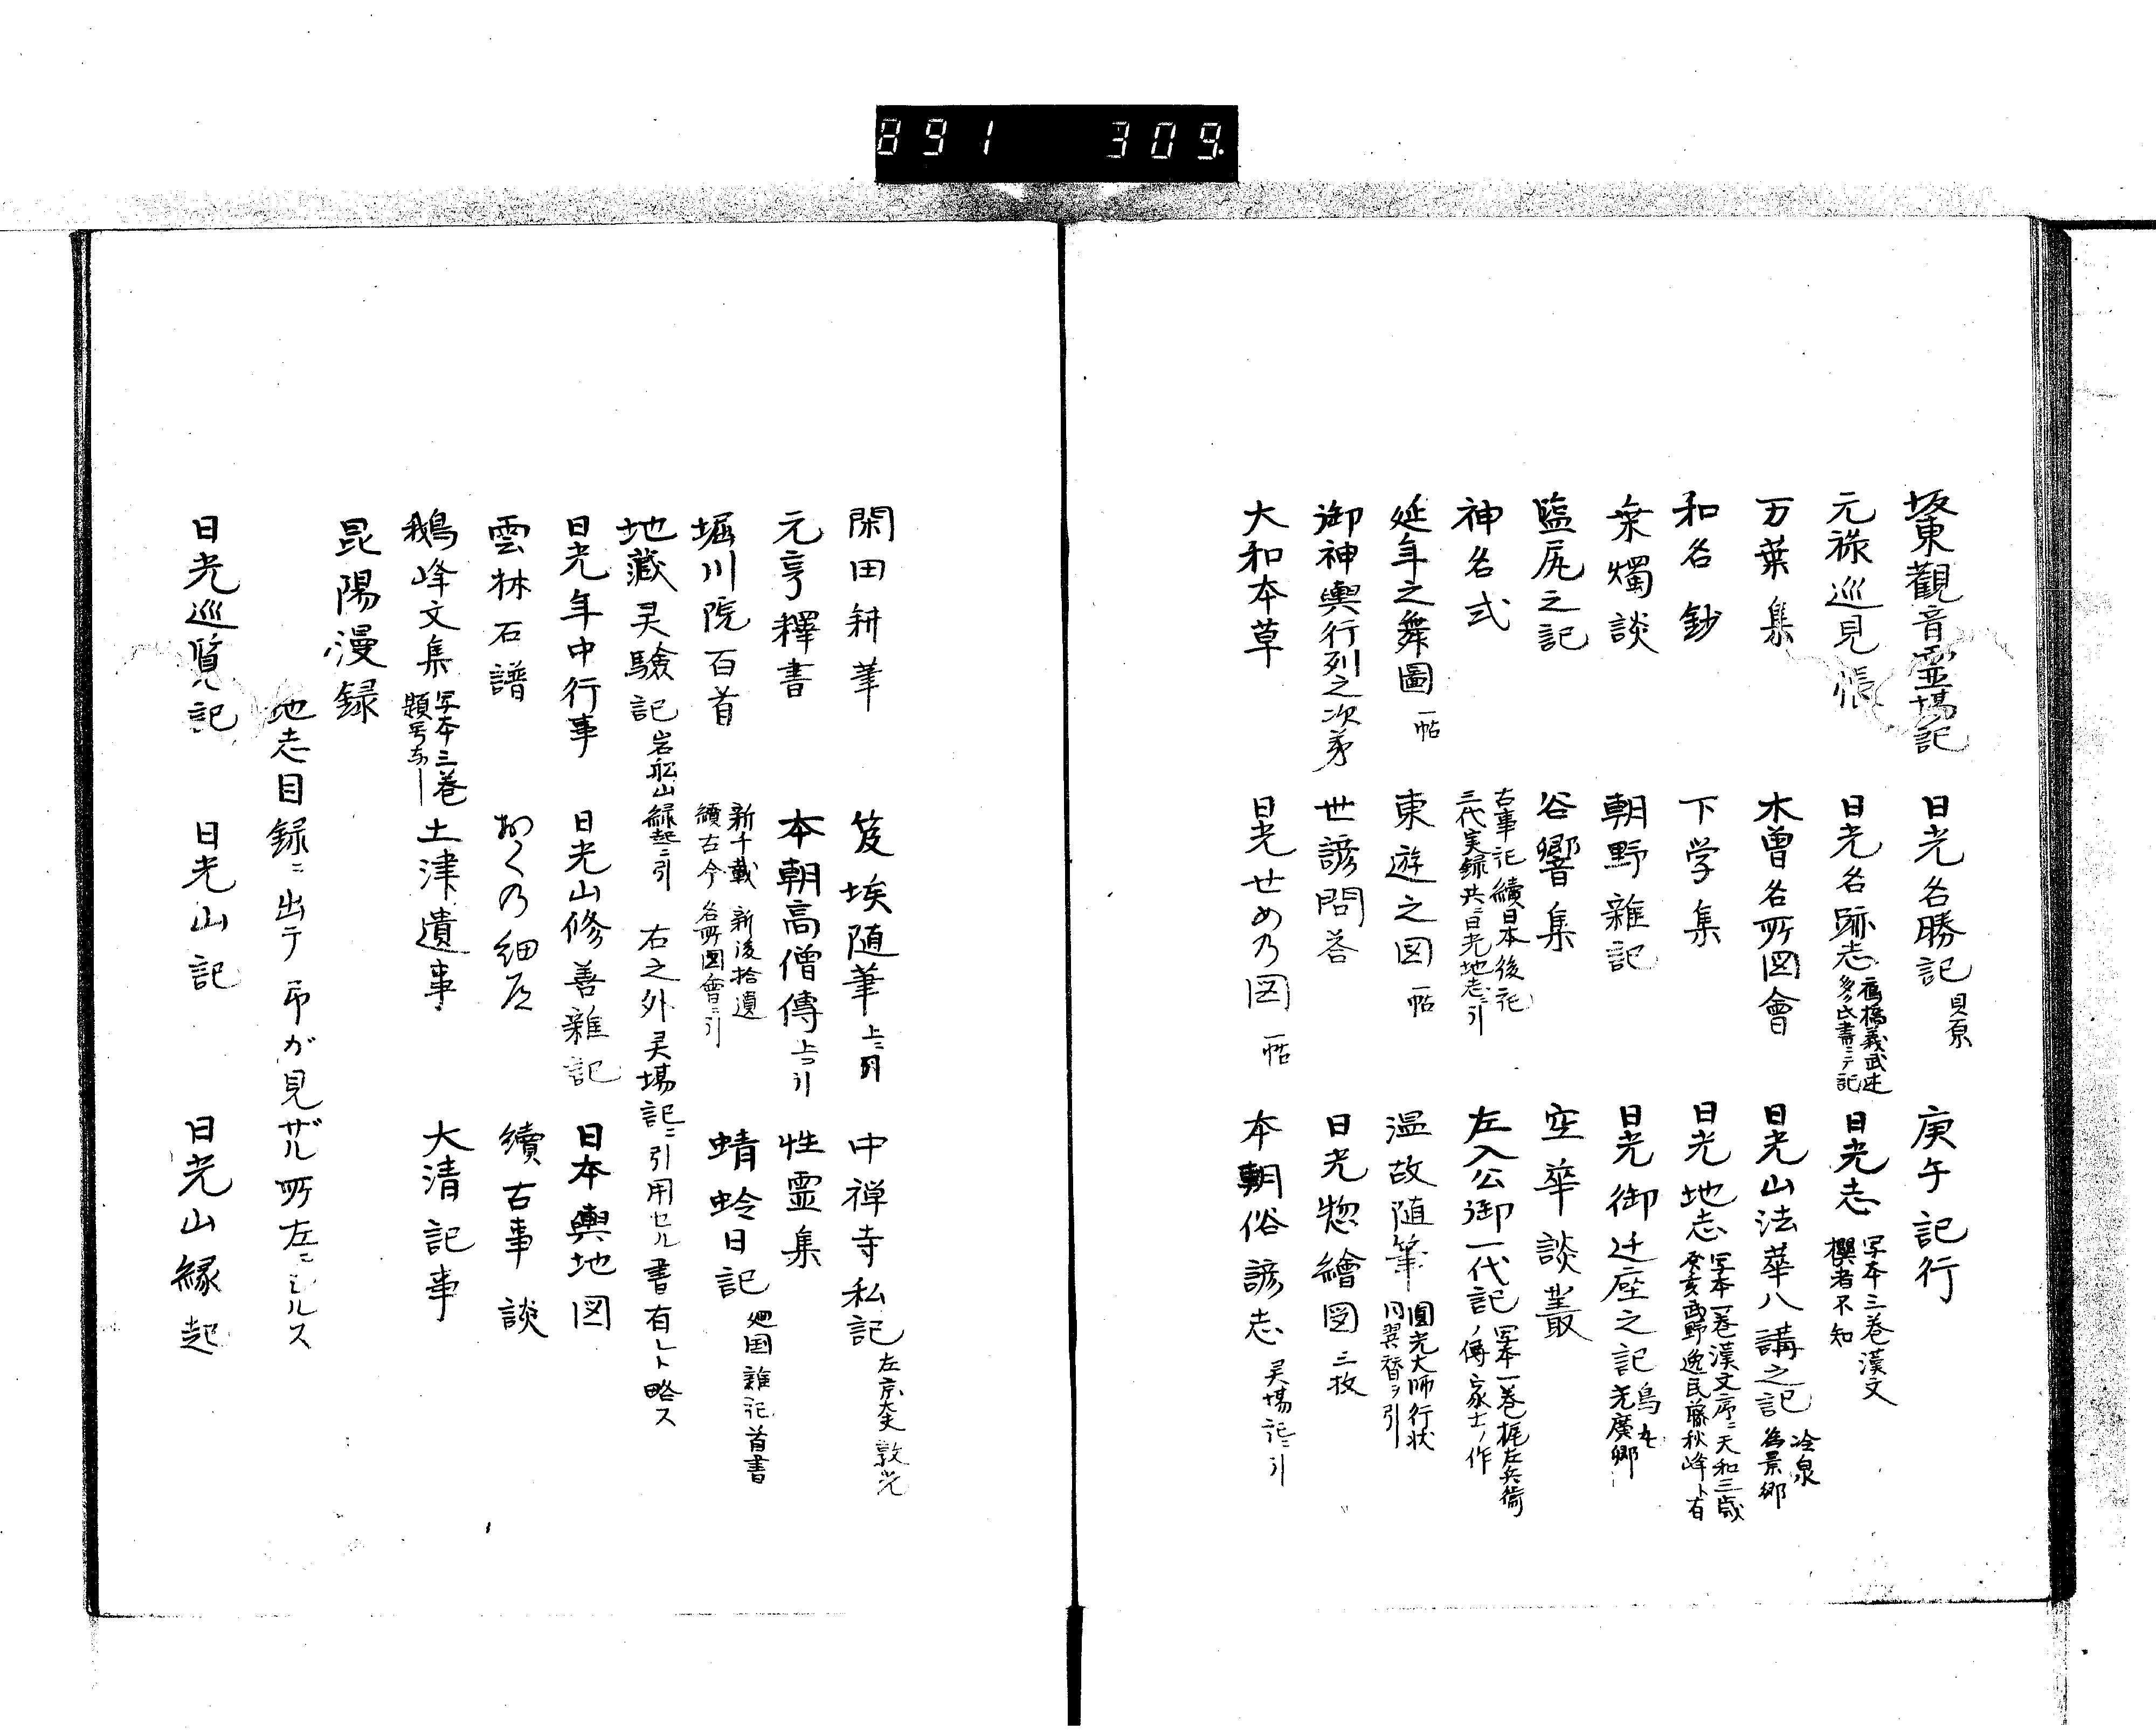 891 309.
坂東觀音霊場記 日光名勝記 貝原 庚午記行
元祿巡見帳 日光名跡志 旧橋義武述 多氏書ニテ記 日光志 写本三巻漢文 撰者不知
万葉集 木曽名所図會 日光山法華八講之記 冷泉為景卿
和名鈔 下学集 日光地志 写本一巻漢文序ニ天和三歳 癸亥武野逸民藤秋峰ト有
秉燭談 朝野雜記 日光御迁座之記 烏丸光廣卿
塩尻之記 谷響集 空華談叢
神名式 古事記 續日本後記 三代実録共ニ日光地志ニ引 左入公御一代記 写本一巻梶左兵衛ノ傳家士ノ作
延年之舞圖 一帖 東遊之図 一帖 温故随筆 圓光大師行状 同翼賛ヲ引
御神輿行列之次第 世諺問答 日光惣繪図 三枚
大和本草 日光せめ乃図 一帖 本朝俗諺志 灵場記ニ引
閑田耕筆 笈埃随筆 上ニ引 中禅寺私記 左京大夫敦光
元亨釋書 本朝高僧傳 上ニ引 性霊集
堀川院百首 新千載 新後拾遺 續古今 名所圖會ニ引 蜻蛉日記 廻国雜記首書
地藏灵驗記 岩舩山縁起ニ引 右之外灵場記ニ引用セル書有レト略ス
日光年中行事 日光山修善雜記 日本輿地図
雲林石譜 おくの細道 續古事談
鵝峰文集 写本三巻 題号ナシ 土津遺事 大清記事
昆陽漫録
地志目録ニ出テ 予が見ザル所左ニシルス
日光巡覧記 日光山記 日光山縁起